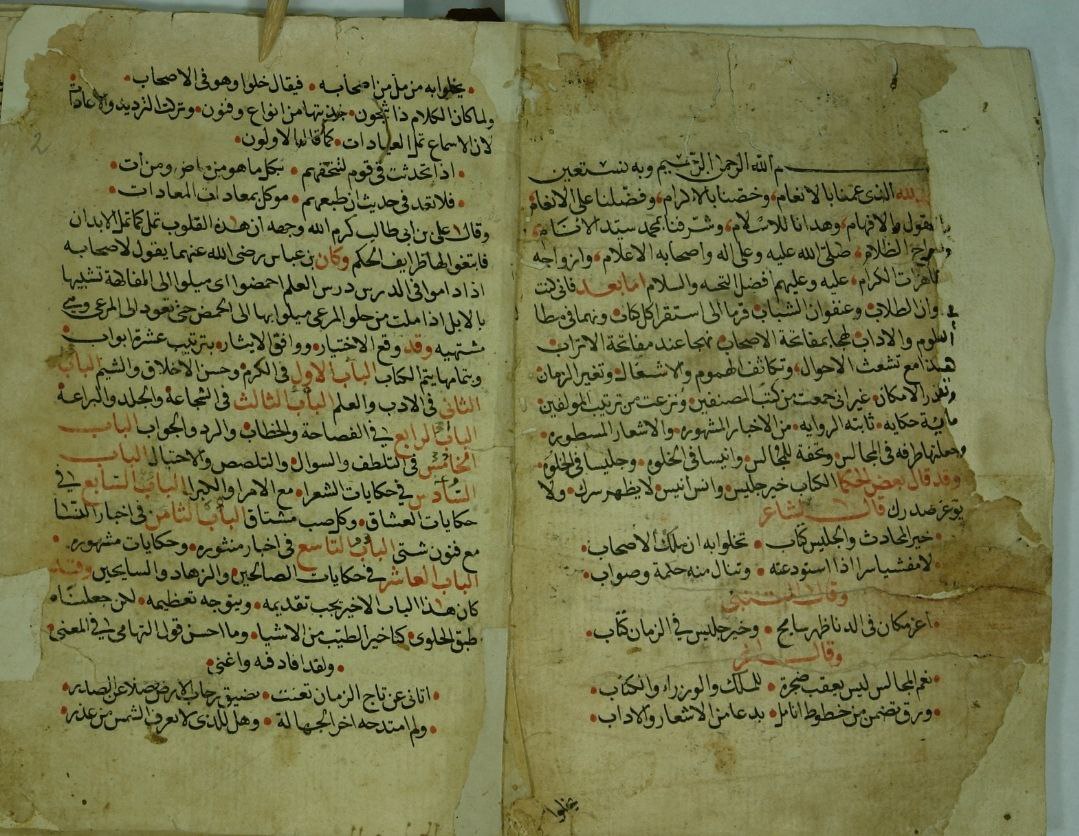 الله الرحمن الرحيم وبه نستعين
لله الذى عمنا بالانعام وخصنا بالاكرام وفضلنا على الانعام
والافهام وهدانا للاسلام وشرفنا بمحمد سيد الانام
الظلام صلى الله عليه وعلى اله واصحابه الاعلام وازواجه
الكرام عليه وعليهم افضل التحيه والسلام اما بعد فانى كنت
وان الطلاب وعنفوان الشباب قرما الى استقرا كل كتاب ونهما فى مطا
العلوم والاداب لهجا بمفاتحة الاصحاب بهجا عند مفاتحة الاتراب
هذا مع تشعث الاحوال وتكاثف الهموم والاشغال وتغير الزمان
وتعذر الامكان غير انى جمعت من كتب المصنفين ونزعت من ترتيب المولفين
حكايه ثابته الروايه من الاخبار المشهوره والاشعار المسطوره
وجعلتها طرفه فى المجالس وتحفة للمجالس وانيسا فى الخلوه وجليسا فى الجلوه
وقد قال بعض الحكما الكتاب خير جليس وانس انيس لا يظهر سرك ولا
يوغر صدرك قال الشاعر
خير المحادث والجليس كتاب تخلو به ان ملك الاصحاب
لا مفشيا سرا اذا استودعته وتنال منه حكمة وصواب
وقال المتنبى
اعز مكان فى الدنا ظهر سابح وخير جليس فى الزمان كتاب
وقال اخر
نعم المجالس ليس يعقب ضجرة للملك والوزراء والكتاب
ورق تضمن من خطوط انامل بدعا من الاشعار والاداب
يخلوا
يخلوا به من مل من اصحابه فيقال خلوا وهو فى الاصحاب
ولما كان الكلام ذا شجون من انواع وفنون وترك الترديد والاعادات
لان الاسماع تمل المعادات كما قال الاولون
اذا تحدثت فى قوم لتتحفهم بكل ما هو من ماض ومن ات
فلا تعد فى حديث ان طبعهم موكل بمعاداة المعادات
وقال على بن ابى طالب كرم الله وجهه ان هذه القلوب تمل كما تمل الابدان
فابتغوا لها طرايف الحكم وكان بن عباس رضى الله عنهما يقول لاصحابه
اذا داموا فى الدرس درس العلم احمضوا اى ميلوا الى المفاكهة تشبيها
بالابل اذا ملت من حلو المرعى ميلوا بها الى الحمض حتى تعود الى المرعى وهى
تشتهيه وقد وقع الاختيار ووافق الايثار بترتيب عشرة ابواب
وبتمامها يتم الكتاب الباب الاول فى الكرم وحسن الاخلاق والشيم الباب
الثانى فى الادب والعلم الباب الثالث فى الشجاعة والجلد والبراعة
الباب الرابع فى الفصاحة والخطاب والرد والجواب الباب
الخامس فى التلطف والسوال والتلصص والاحتيال الباب
السادس فى حكايات الشعرا مع الامرا والكبرا الباب السابع فى
حكايات العشاق وكل صب مشتاق الباب الثامن فى اخبار النسا
مع فنون شتى الباب التاسع فى اخبار منثوره وحكايات مشهوره
الباب العاشر فى حكايات الصالحين والزهاد والسايحين وقد
كان هذا الباب الاخير يجب تقديمه ويتوجه تعظيمه لكن جعلناه
طبق الحلوى كتاخير الطيب من الاشيا وما احسن قول التهامى فى المعنى
ولقد افاد فيه واغنى
اتانى عن تاج الزمان تعنت بضيق رحاب الارض فضلا عن الصدر
ولم امتدحه اخرا لجهالة وهل للندى لا يعرف الشمس من عذر
2